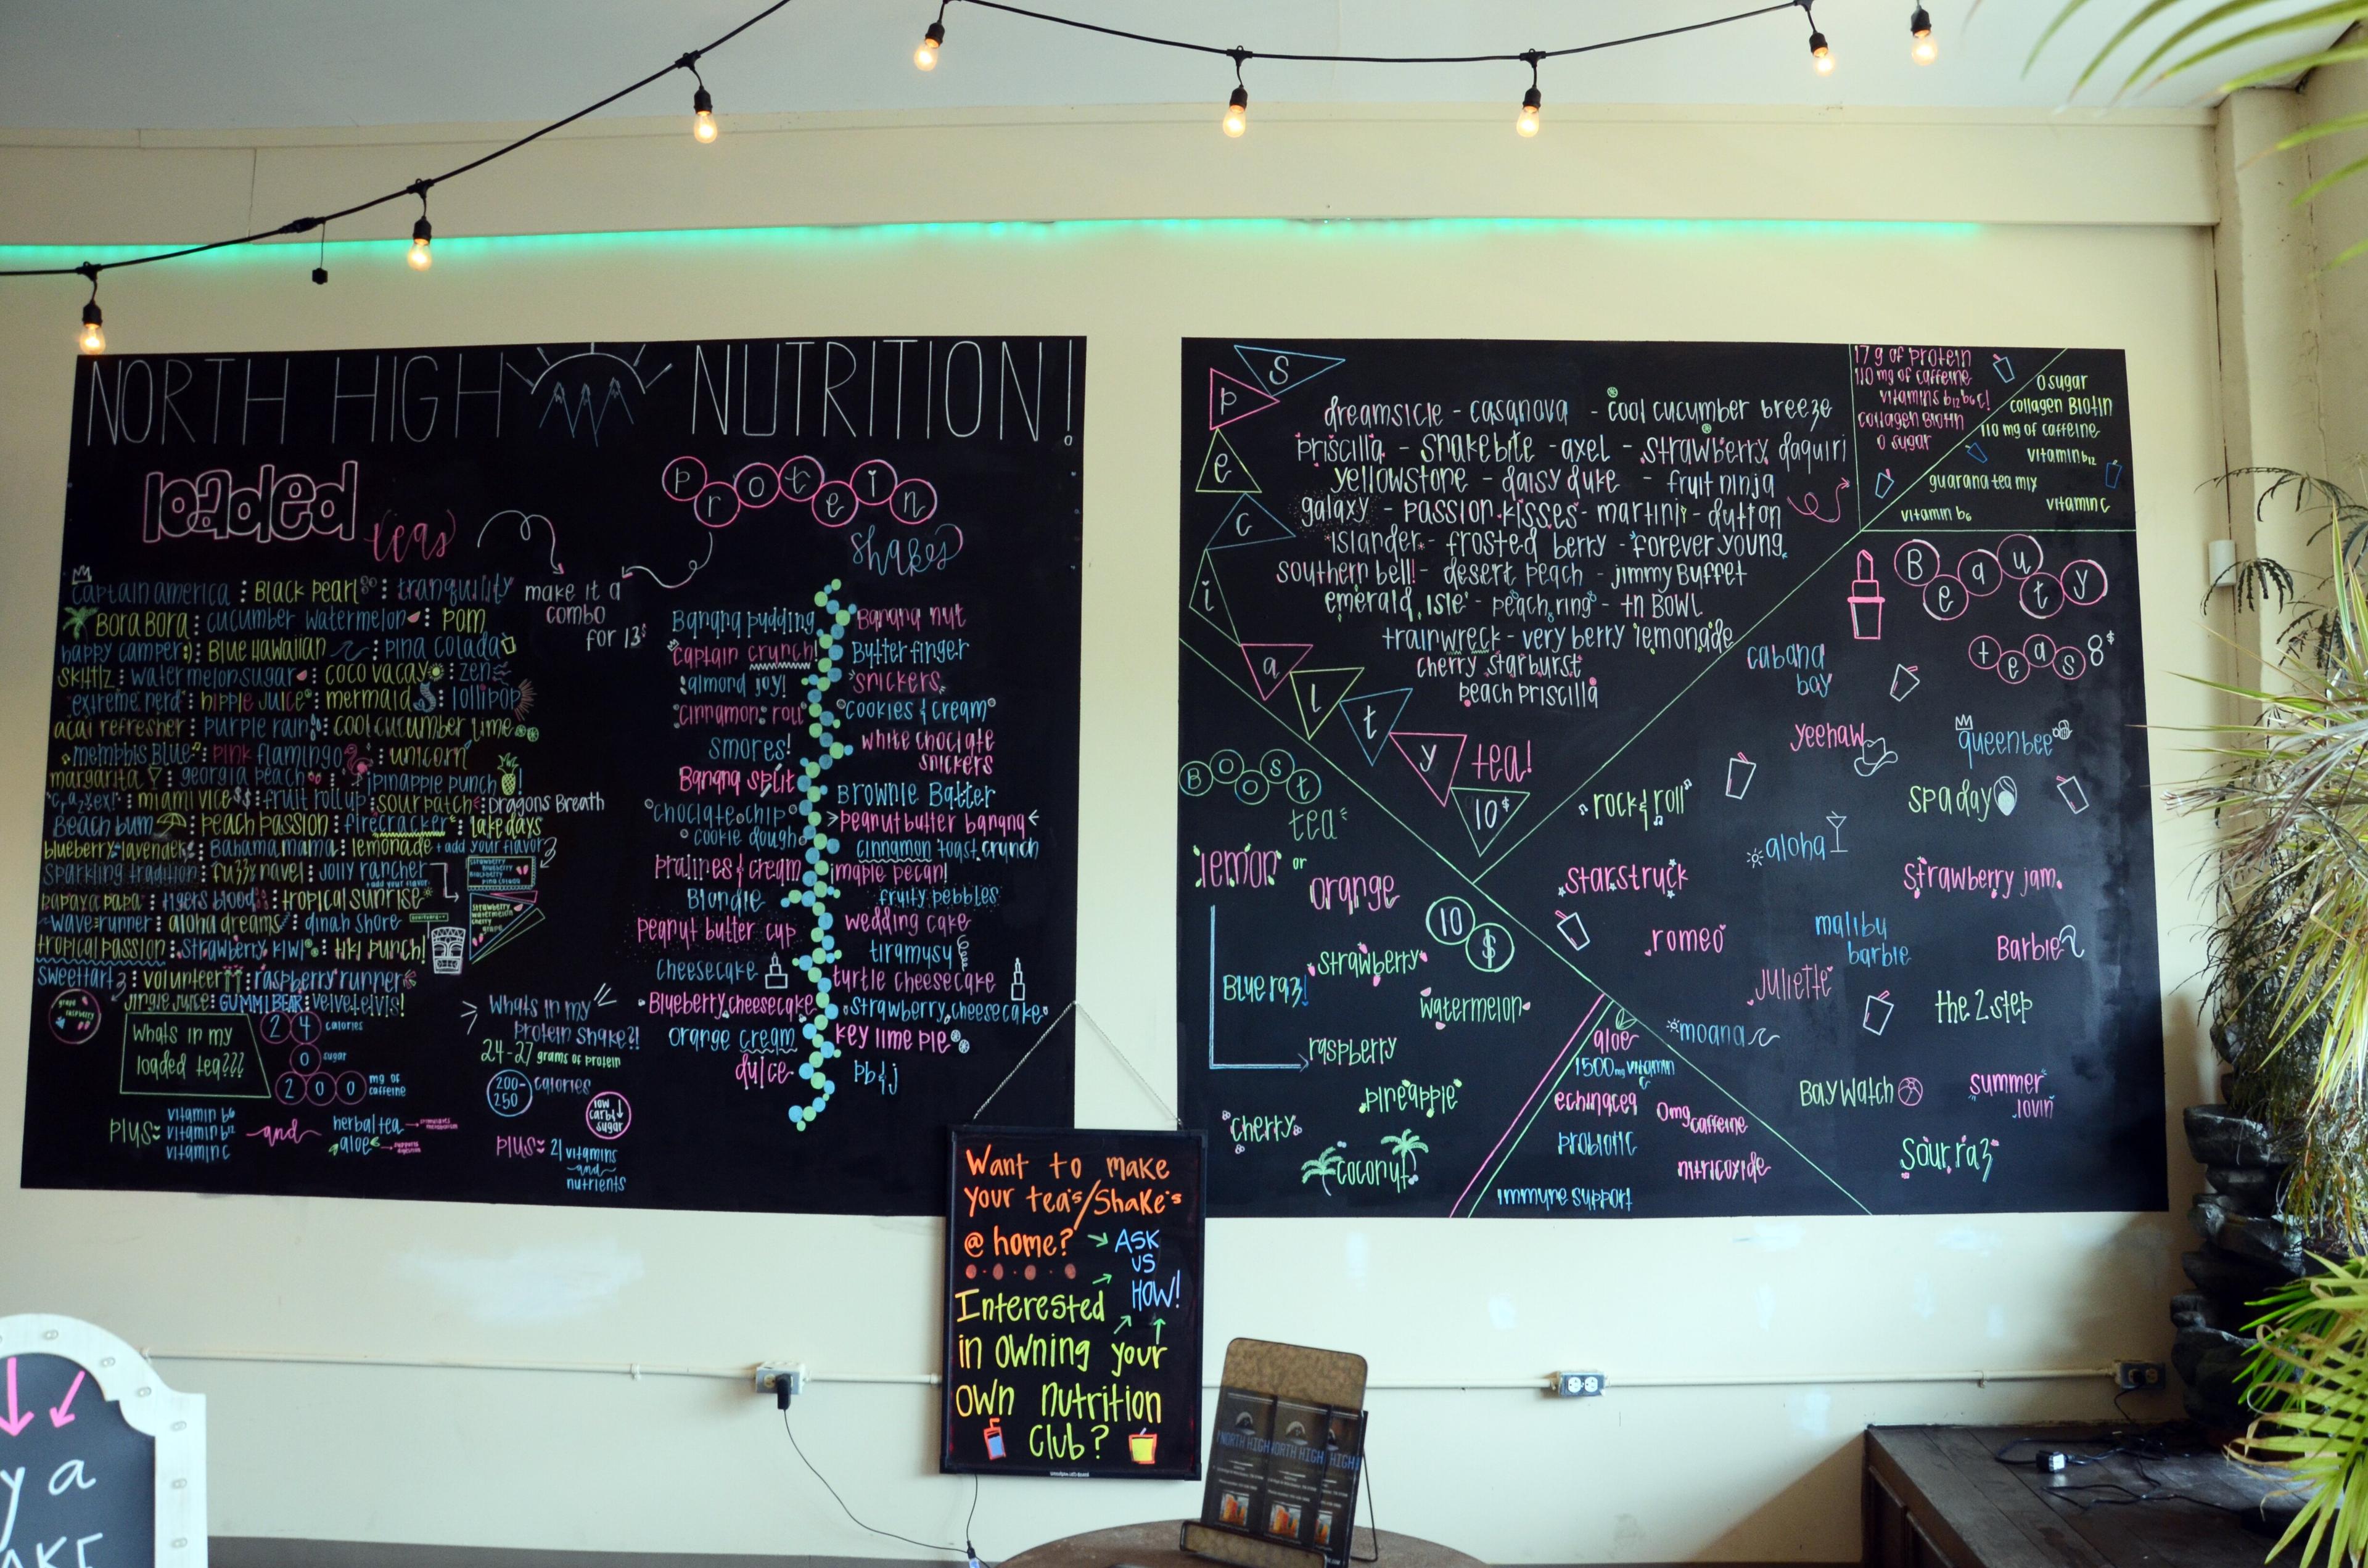 NORTH HIGH NUTRITION!
loaded teas
captain america : Black pearl : tranquility
Bora Bora : cucumber watermelon : pom
happy camper :) : Blue Hawaiian : pina colada
skittlz : watermelon sugar : coco vacay : zen
extreme nerd : hippie juice : mermaid : lollipop
acai refresher : purple rain : cool cucumber lime
memphis Blue : pink flamingo : unicorn
margarita : georgia peach : pinapple punch!
crazy ex! : miami vice $$ : fruit roll up : sour patch : Dragons Breath
Beach bum : peach passion : firecracker : lake days
blueberry lavender : Bahama mama : lemonade + add your flavor
Sparkling tradition : fuzzy navel : Jolly rancher
+ add your flavor
papaya papa : tigers blood : tropical sunrise
wave runner : aloha dreams : dinah shore
tropical passion : strawberry kiwi : tiki punch!
sweettart : volunteer : raspberry runner
Jingle juice : GUMMI BEAR : velvet elvis!
strawberry
watermelon
cherry
grape
Whats in my
loaded tea???
24 calories
0 sugar
200 mg of caffeine
plus: vitamin b6
vitamin b12
vitamin c
and
herbal tea
aloe
make it a
combo
for 13$
protein
shakes
Banana pudding
captain crunch!
almond joy!
cinnamon roll
smores!
Banana split
choclate chip
cookie dough
pralines & cream
Blondie
peanut butter cup
cheesecake
Blueberry cheesecake
orange cream
dulce
Banana nut
Butterfinger
snickers
cookies & cream
white choclate
snickers
Brownie Batter
peanut butter banana
cinnamon toast crunch
maple pecan!
fruity pebbles
wedding cake
tiramusy
turtle cheesecake
strawberry cheesecake
key lime pie
pb&j
Whats in my
protein shake?!
24-27 grams of protein
200-250 calories
low carb
sugar
plus: 21 vitamins
and
nutrients
Specialty tea!
10$
dreamsicle - casanova - cool cucumber breeze
priscilla - snakebite - axel - strawberry daquiri
yellowstone - daisy duke - fruit ninja
galaxy - passion kisses - martini - dutton
islander - frosted berry - forever young
southern bell! - desert peach - jimmy Buffet
emerald isle - peach ring - tn BOWL
trainwreck - very berry lemonade
cherry starburst
peach priscilla
17 g of protein
110 mg of caffeine
vitamins b12 b6 c!
collagen Biotin
0 sugar
0 sugar
collagen Biotin
110 mg of caffeine
vitamin b12
guarana tea mix
vitamin c
vitamin b6
Beauty
teas 8$
cabana
boy
yeehaw
queen bee
rock & roll
spa day
aloha
starstruck
strawberry jam
romeo
malibu
barbie
Barbie
Juliette
the 2 step
moana
Baywatch
summer
lovin
sour raz
Boost
tea
lemon or orange
10$
Blue raz!
strawberry
watermelon
raspberry
pineapple
cherry
coconut
aloe
1500mg vitamin
c
echinacea
0mg caffeine
probiotic
nitricoxide
immune support
Want to make
your tea's/Shake's
@ home?
ASK
US
HOW!
Interested
in owning your
own nutrition
Club?
NORTH HIGH
NORTH HIGH
HIGH
y a
AKE